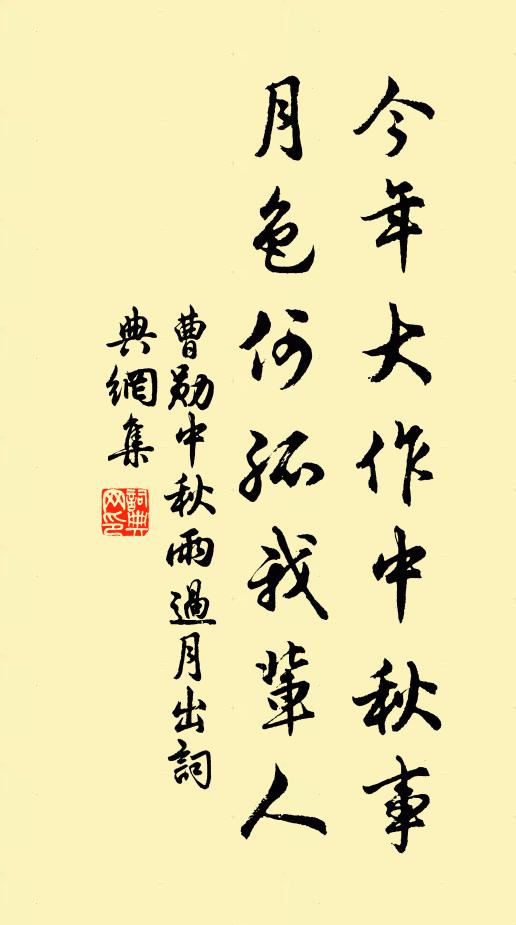 今年大作中秋事
月色何孤我輩人
曹勛中秋雨過月出詞
典網集
詞典网印